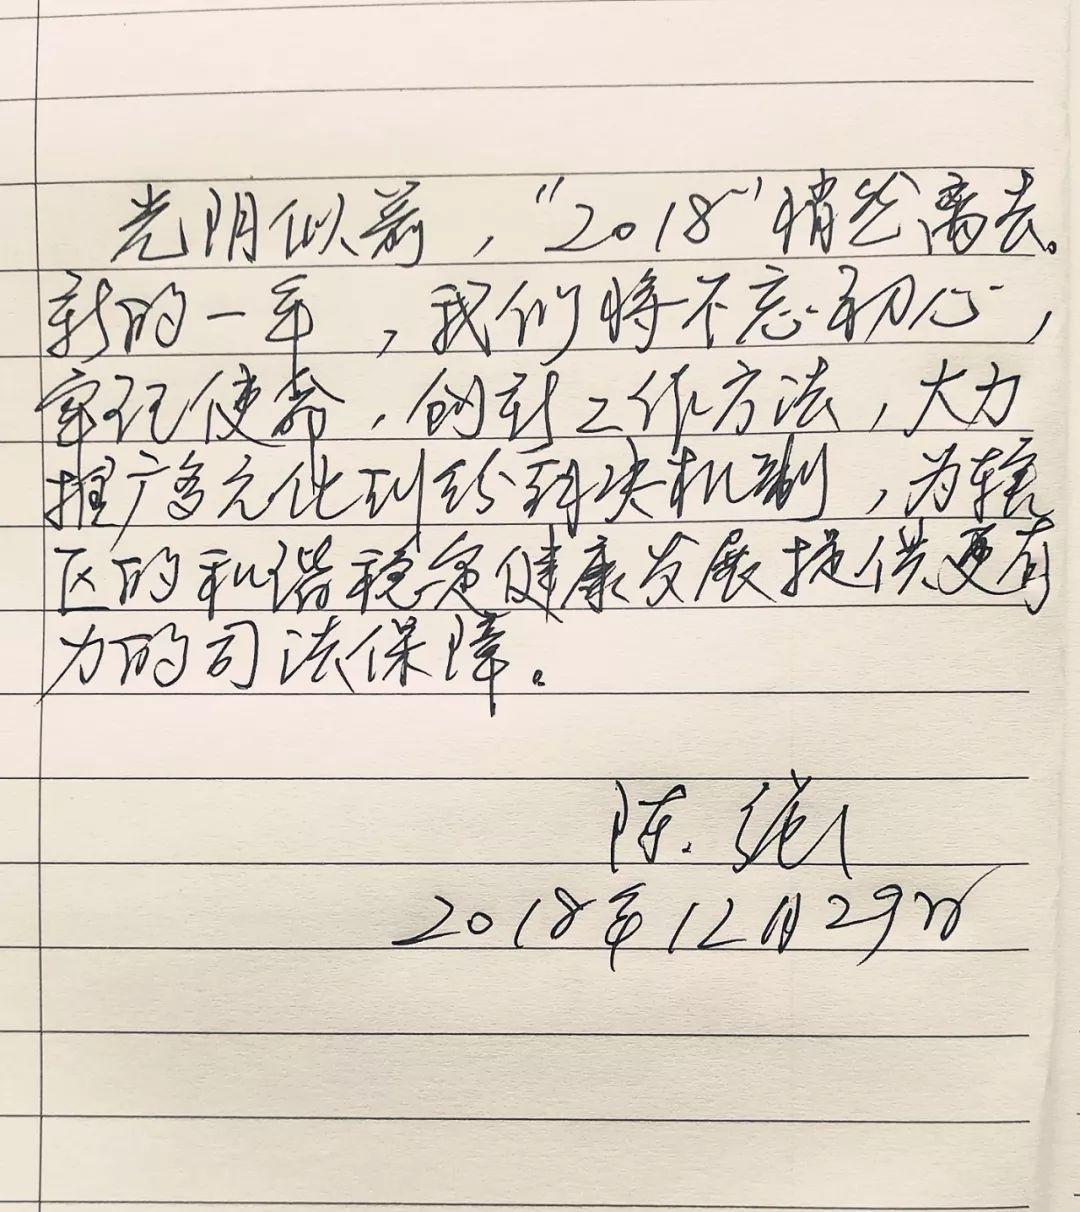 光阴似箭，“2018”悄然离去。
新的一年，我们将不忘初心，
牢记使命，创新工作方法，大力
推广多元化纠纷解决机制，为辖
区的和谐稳定健康发展提供更有
力的司法保障。
陈
2018年12月29日